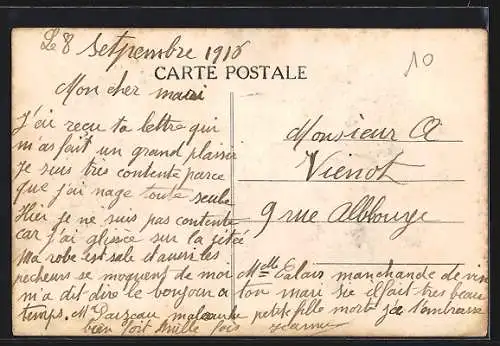 Le 8 Setpembre 1916
10
CARTE POSTALE
Mon cher mari
J'ai reçu ta lettre qui
m'as fait un grand plaisir
Je suis très contente parce
que j'ai nage toute seule
Hier je ne suis pas contente
car j'ai glissée sur la jetée
Ma robe est sale et aussi les
pecheurs se moquent de moi
m'a dit dire le bonjour a
temps. Mr
Monsieur A
Vienot
9 rue
Melle manchande de vin
ton mari sil fait très beau
petite fille mort j'e l'embrasse
bien fort mille fois